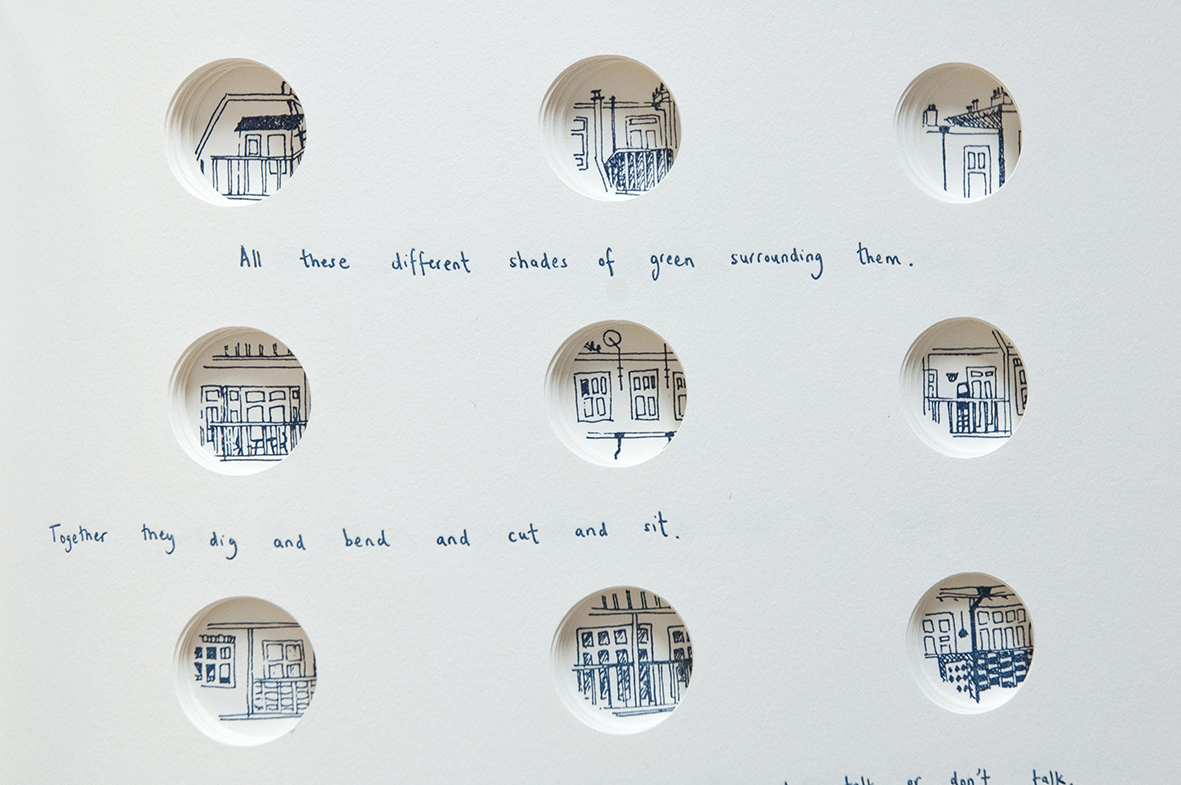 All these different shades of green surrounding them.
Together they dig and bend and cut and sit.
talk or don't talk.